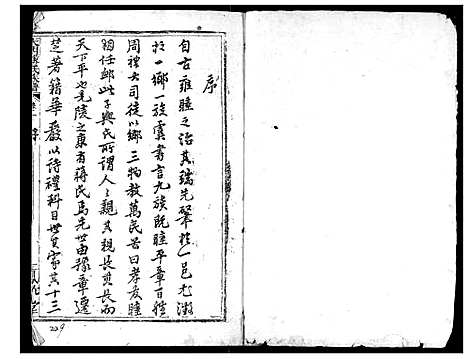 序
自古雍睦之治其端先肇於一邑尤溯
於一鄉一族虞書言九族既睦平章百姓
周禮大司徒以鄉三物教萬民曰孝友睦
婣任卹此子輿氏所謂人人親其親長其長而
天下平也毛陵之東有蔣氏焉先世由豫章遷
芝著籍華嚴以詩禮科目世其家其十三
229